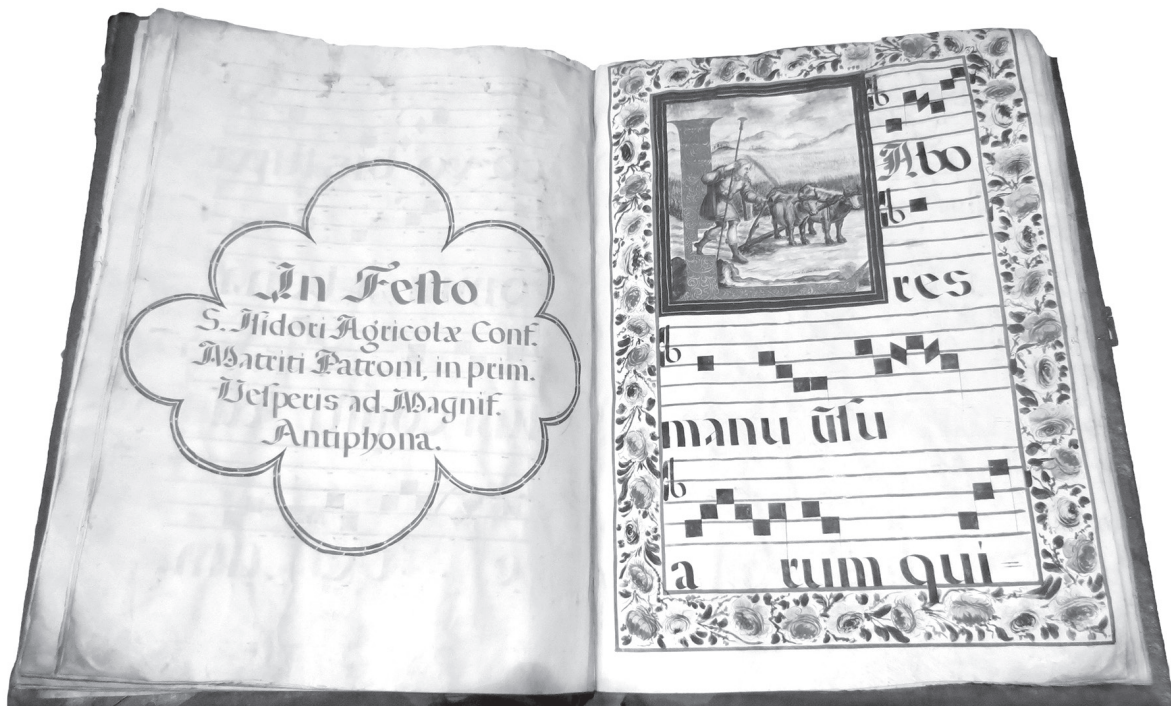 In Feſto
S. Iſidori Agricolæ Conf.
Matriti Patroni, in prim.
Veſperis ad Magnif.
Antiphona.
L Abo
res
manu ũ tu
a rum qui =